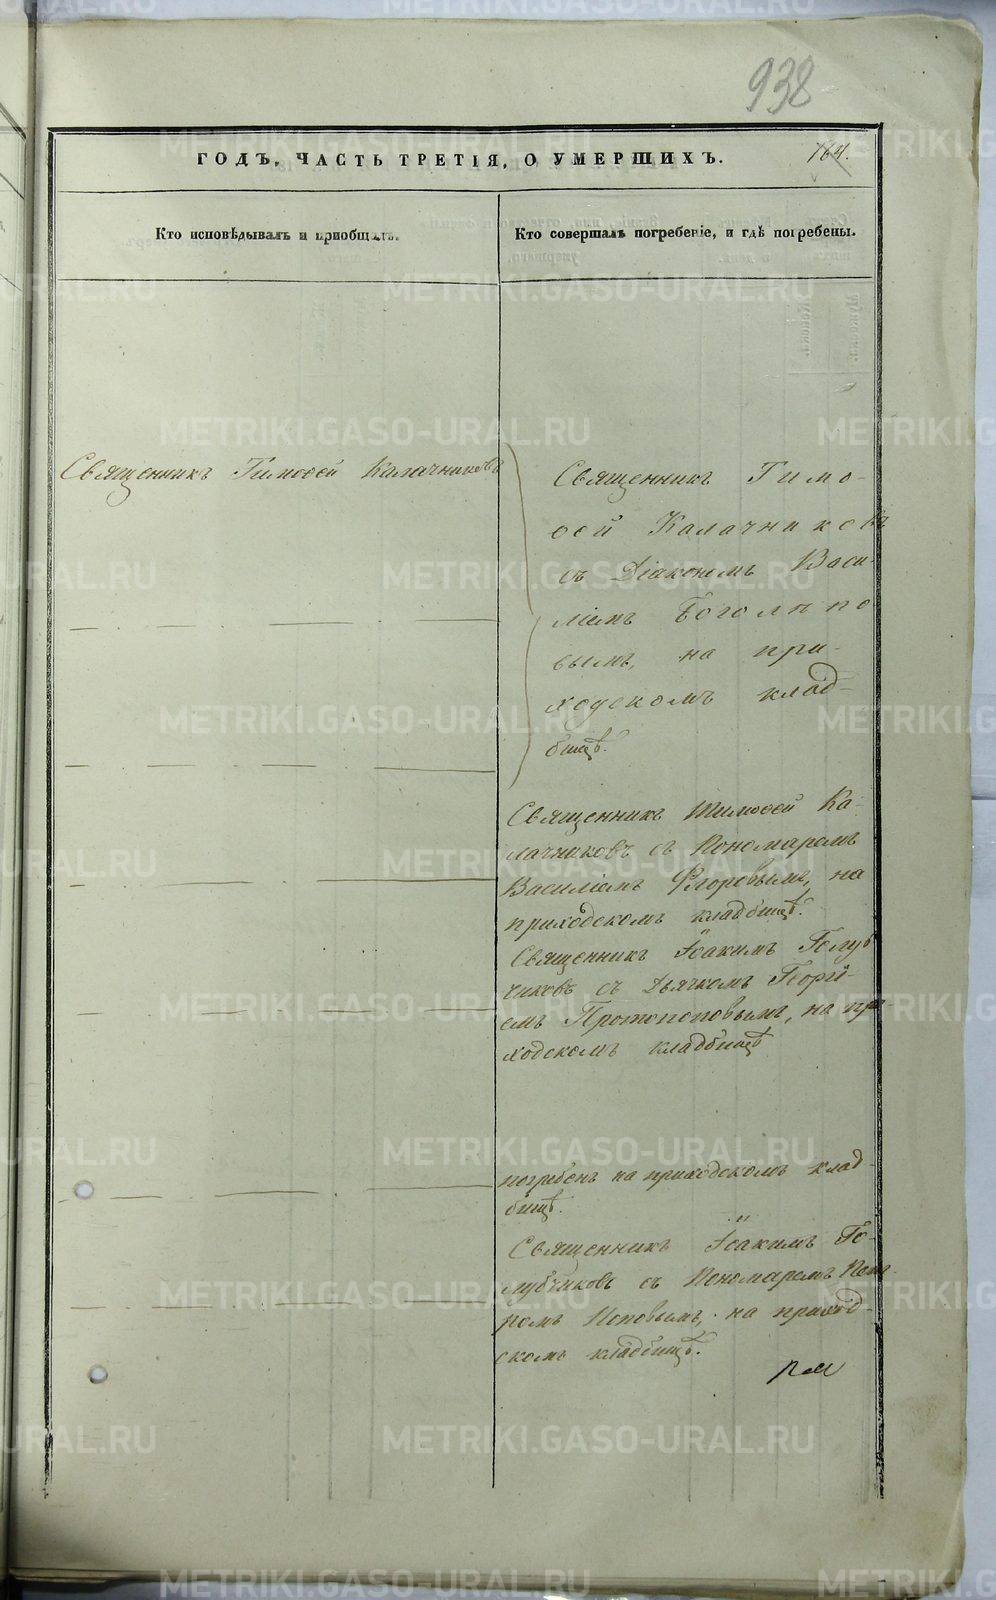 938
ГОДЪ, ЧАСТЬ ТРЕТІЯ, О УМЕРШИХЪ.
164.
Кто исповѣдывалъ и приобщалъ.
Кто совершалъ погребеніе, и гдѣ погребены.
Священникъ Тимоѳей Калачниковъ
Священникъ Тимо-
ѳей Калачниковъ
съ Діакономъ Васи-
ліемъ Боголѣпо
вымъ, на при-
ходскомъ клад-
бищѣ.
Священникъ Тимоѳей Ка-
лачниковъ съ Пономаремъ
Василіемъ Флоровымъ, на
приходскомъ кладбищѣ.
Священникъ Іоакимъ Голуб
чиковъ съ Дьячкомъ Георгі-
емъ Протопоповымъ, на при
ходскомъ кладбищѣ
погребенъ на приходскомъ клад-
бищѣ.
Священникъ Іоакимъ Го-
лубчиковъ съ Пономаремъ
Поповымъ, на приход-
скомъ кладбищѣ.
METRIKI.GASO-URAL.RU